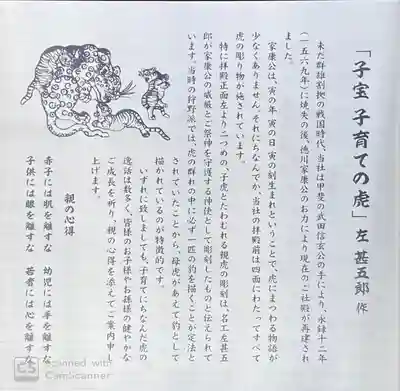 「子宝 子育ての虎」 左 甚五郎 作
未だ群雄割拠の戦国時代、当社は甲斐の武田信玄公の手により、永録十二年
(一五六九年)に焼失の後、徳川家康公のお力により現在のご社殿が再建され
ました。
家康公は、寅の年 寅の日 寅の刻生まれということで、虎にまつわる物語が
少なくありません。それにちなんでか、当社の拝殿前は四面にわたってすべて
虎の彫り物が施されています。
特に拝殿正面左より二つめの、「子虎とたわむれる親虎の彫刻は、名工左甚五
郎が家康公の威厳とご祭神を守護する神使として彫刻したものと伝えられて
います。当時の狩野派では、虎の群れの中に必ず一匹の豹を描くことが定法と
されていたことから、母虎があえて豹として
描かれているのが特徴的です。
いずれに致しましても、子育てにちなんだ虎の
逸話は数多く、皆様のお子様やお孫様の健やかな
ご成長を祈り、親の心得を添えてご案内申し
上げます。
親の心得
赤子には肌を離すな 幼児には手を離すな
子供には眼を離すな 若者には心を離すな
CS Scanned with
CamScanner